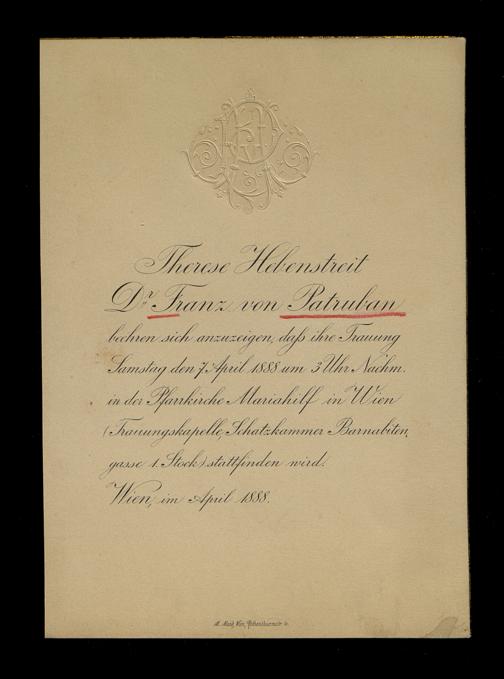 Therese Hebenstreit
Dr Franz von Patruban
beehren sich anzuzeigen, daß ihre Trauung
Samstag den 7. April 1888 um 3 Uhr Nachm.
in der Pfarrkirche Mariahilf in Wien
(Trauungskapelle, Schatzkammer Barnabiten,
gasse 1. Stock) stattfinden wird.
Wien, im April 1888.
Wien,